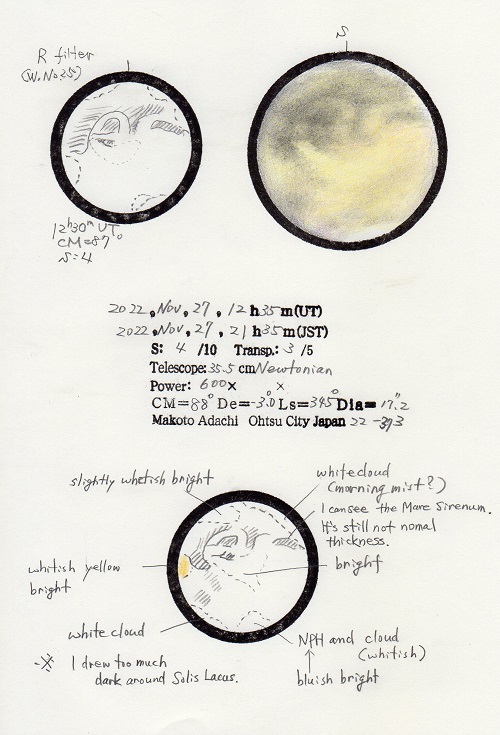 R filter
(W.No25)
S
12h30m UT.
CM=87°
S=4
2022, Nov, 27, 12 h 35 m (UT)
2022, Nov, 27, 21 h 35 m (JST)
S: 4 /10 Transp.: 3 /5
Telescope: 35.5 cm Newtonian
Power: 600× ×
CM=88° De=-3.0° Ls=345° Dia=17.2"
Makoto Adachi Ohtsu City Japan 22-393
slightly whetish bright
white cloud
(morning mist?)
I can see the Mare Sirenum.
It's still not nomal
thickness.
whitish yellow
bright
bright
white cloud
NPH and cloud
(whitish)
※ I drew too much
dark around Solis Lacus.
bluish bright